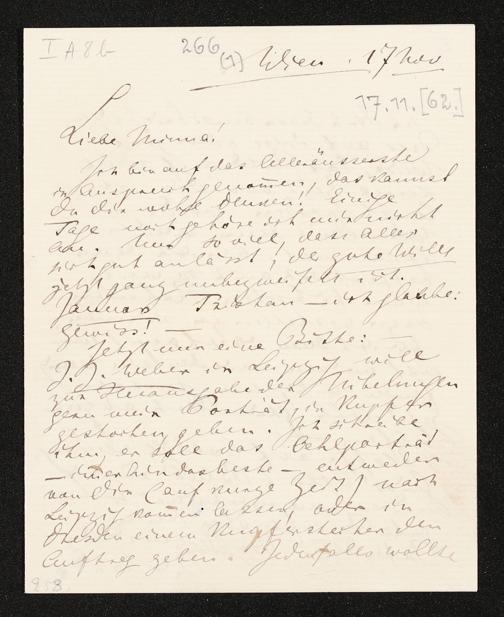 I A 8 b
266
(1)
Wien. 17 Nov
17.11.[62.]
Liebe Minna!
Ich bin auf das Alleräusserste
in Anspruch genom̅en, das kannst
Du Dir wohl denken. Einige
Tage noch gehöre ich mir nicht
an. Nur so viel, dass alles
sich gut anlässt, der gute Wille
jetzt ganz unbezweifelt ist.
Januar Tristan — ich glaube:
gewiss! —
Jetzt nur eine Bitte: —
J. J. Weber in Leipzig will
zur Herausgabe der Nibelungen
gern mein Porträt, in Kupfer
gestochen geben. Ich schreibe
ihm, er solle das Oehlporträt
— im̅erhin das beste — entweder
von Dir (auf kurze Zeit) nach
Leipzig kom̅en lassen, oder in
Dresden einem Kupferstecher den
Auftrag geben. Jedenfalls wollte